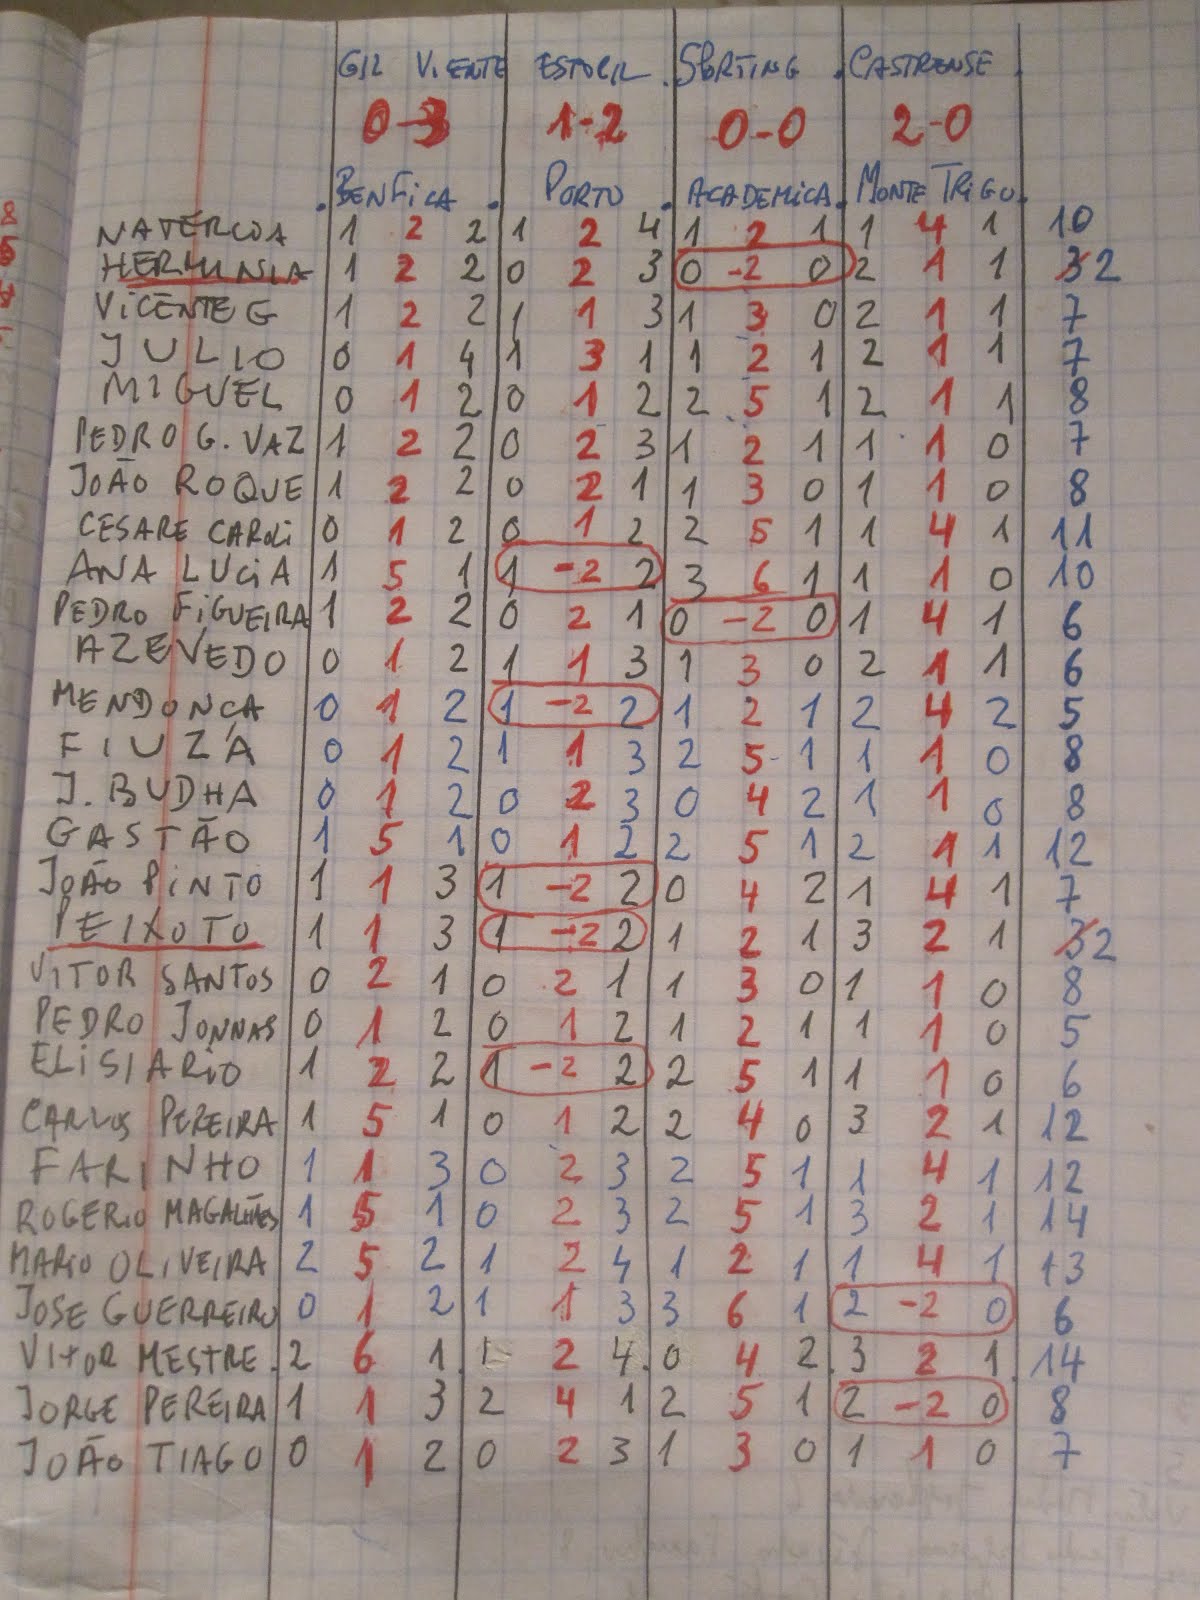 GIL VICENTE ESTORIL . SPORTING . CASTRENSE
0-3 1-2 0-0 2-0
. BENFICA . PORTO . ACADEMICA . MONTE TRIGO .
NATÉRCIA 1 2 2 1 2 4 1 2 1 1 4 1 10
HERMINIA 1 2 2 0 2 3 0 -2 0 2 1 1 32
VICENTE G 1 2 2 1 1 3 1 3 0 2 1 1 7
JULIO 0 1 4 1 3 1 1 2 1 2 1 1 7
MIGUEL 0 1 2 0 1 2 2 5 1 2 1 1 8
PEDRO G. VAZ 1 2 2 0 2 3 1 2 1 1 1 0 7
JOÃO ROQUE 1 2 2 0 2 1 1 3 0 1 1 0 8
CESARE CAROLI 0 1 2 0 1 2 2 5 1 1 4 1 11
ANA LUCIA 1 5 1 1 -2 2 3 6 1 1 1 0 10
PEDRO FIGUEIRA 1 2 2 0 2 1 0 -2 0 1 4 1 6
AZEVEDO 0 1 2 1 1 3 1 3 0 2 1 1 6
MENDONÇA 0 1 2 1 -2 2 1 2 1 2 4 2 5
FIUZA 0 1 2 1 1 3 2 5 1 1 1 0 8
J. BUDHA 0 1 2 0 2 3 0 4 2 1 1 0 8
GASTÃO 1 5 1 0 1 2 2 5 1 2 1 1 12
JOÃO PINTO 1 1 3 1 -2 2 0 4 2 1 4 1 7
PEIXOTO 1 1 3 1 -2 2 1 2 1 3 2 1 32
VITOR SANTOS 0 2 1 0 2 1 1 3 0 1 1 0 8
PEDRO JONNAS 0 1 2 0 1 2 1 2 1 1 1 0 5
ELISIARIO 1 2 2 1 -2 2 2 5 1 1 1 0 6
CARLOS PEREIRA 1 5 1 0 1 2 2 4 0 3 2 1 12
FARINHO 1 1 3 0 2 3 2 5 1 1 4 1 12
ROGERIO MAGALHÃES 1 5 1 0 2 3 2 5 1 3 2 1 14
MARIO OLIVEIRA 2 5 2 1 2 4 1 2 1 1 4 1 13
JOSE GUERREIRO 0 1 2 1 1 3 3 6 1 2 -2 0 6
VITOR MESTRE . 2 6 1 . 1 2 4 . 0 4 2 . 3 2 1 . 14
JORGE PEREIRA 1 1 3 2 4 1 2 5 1 2 -2 0 8
JOÃO TIAGO 0 1 2 0 2 3 1 3 0 1 1 0 7